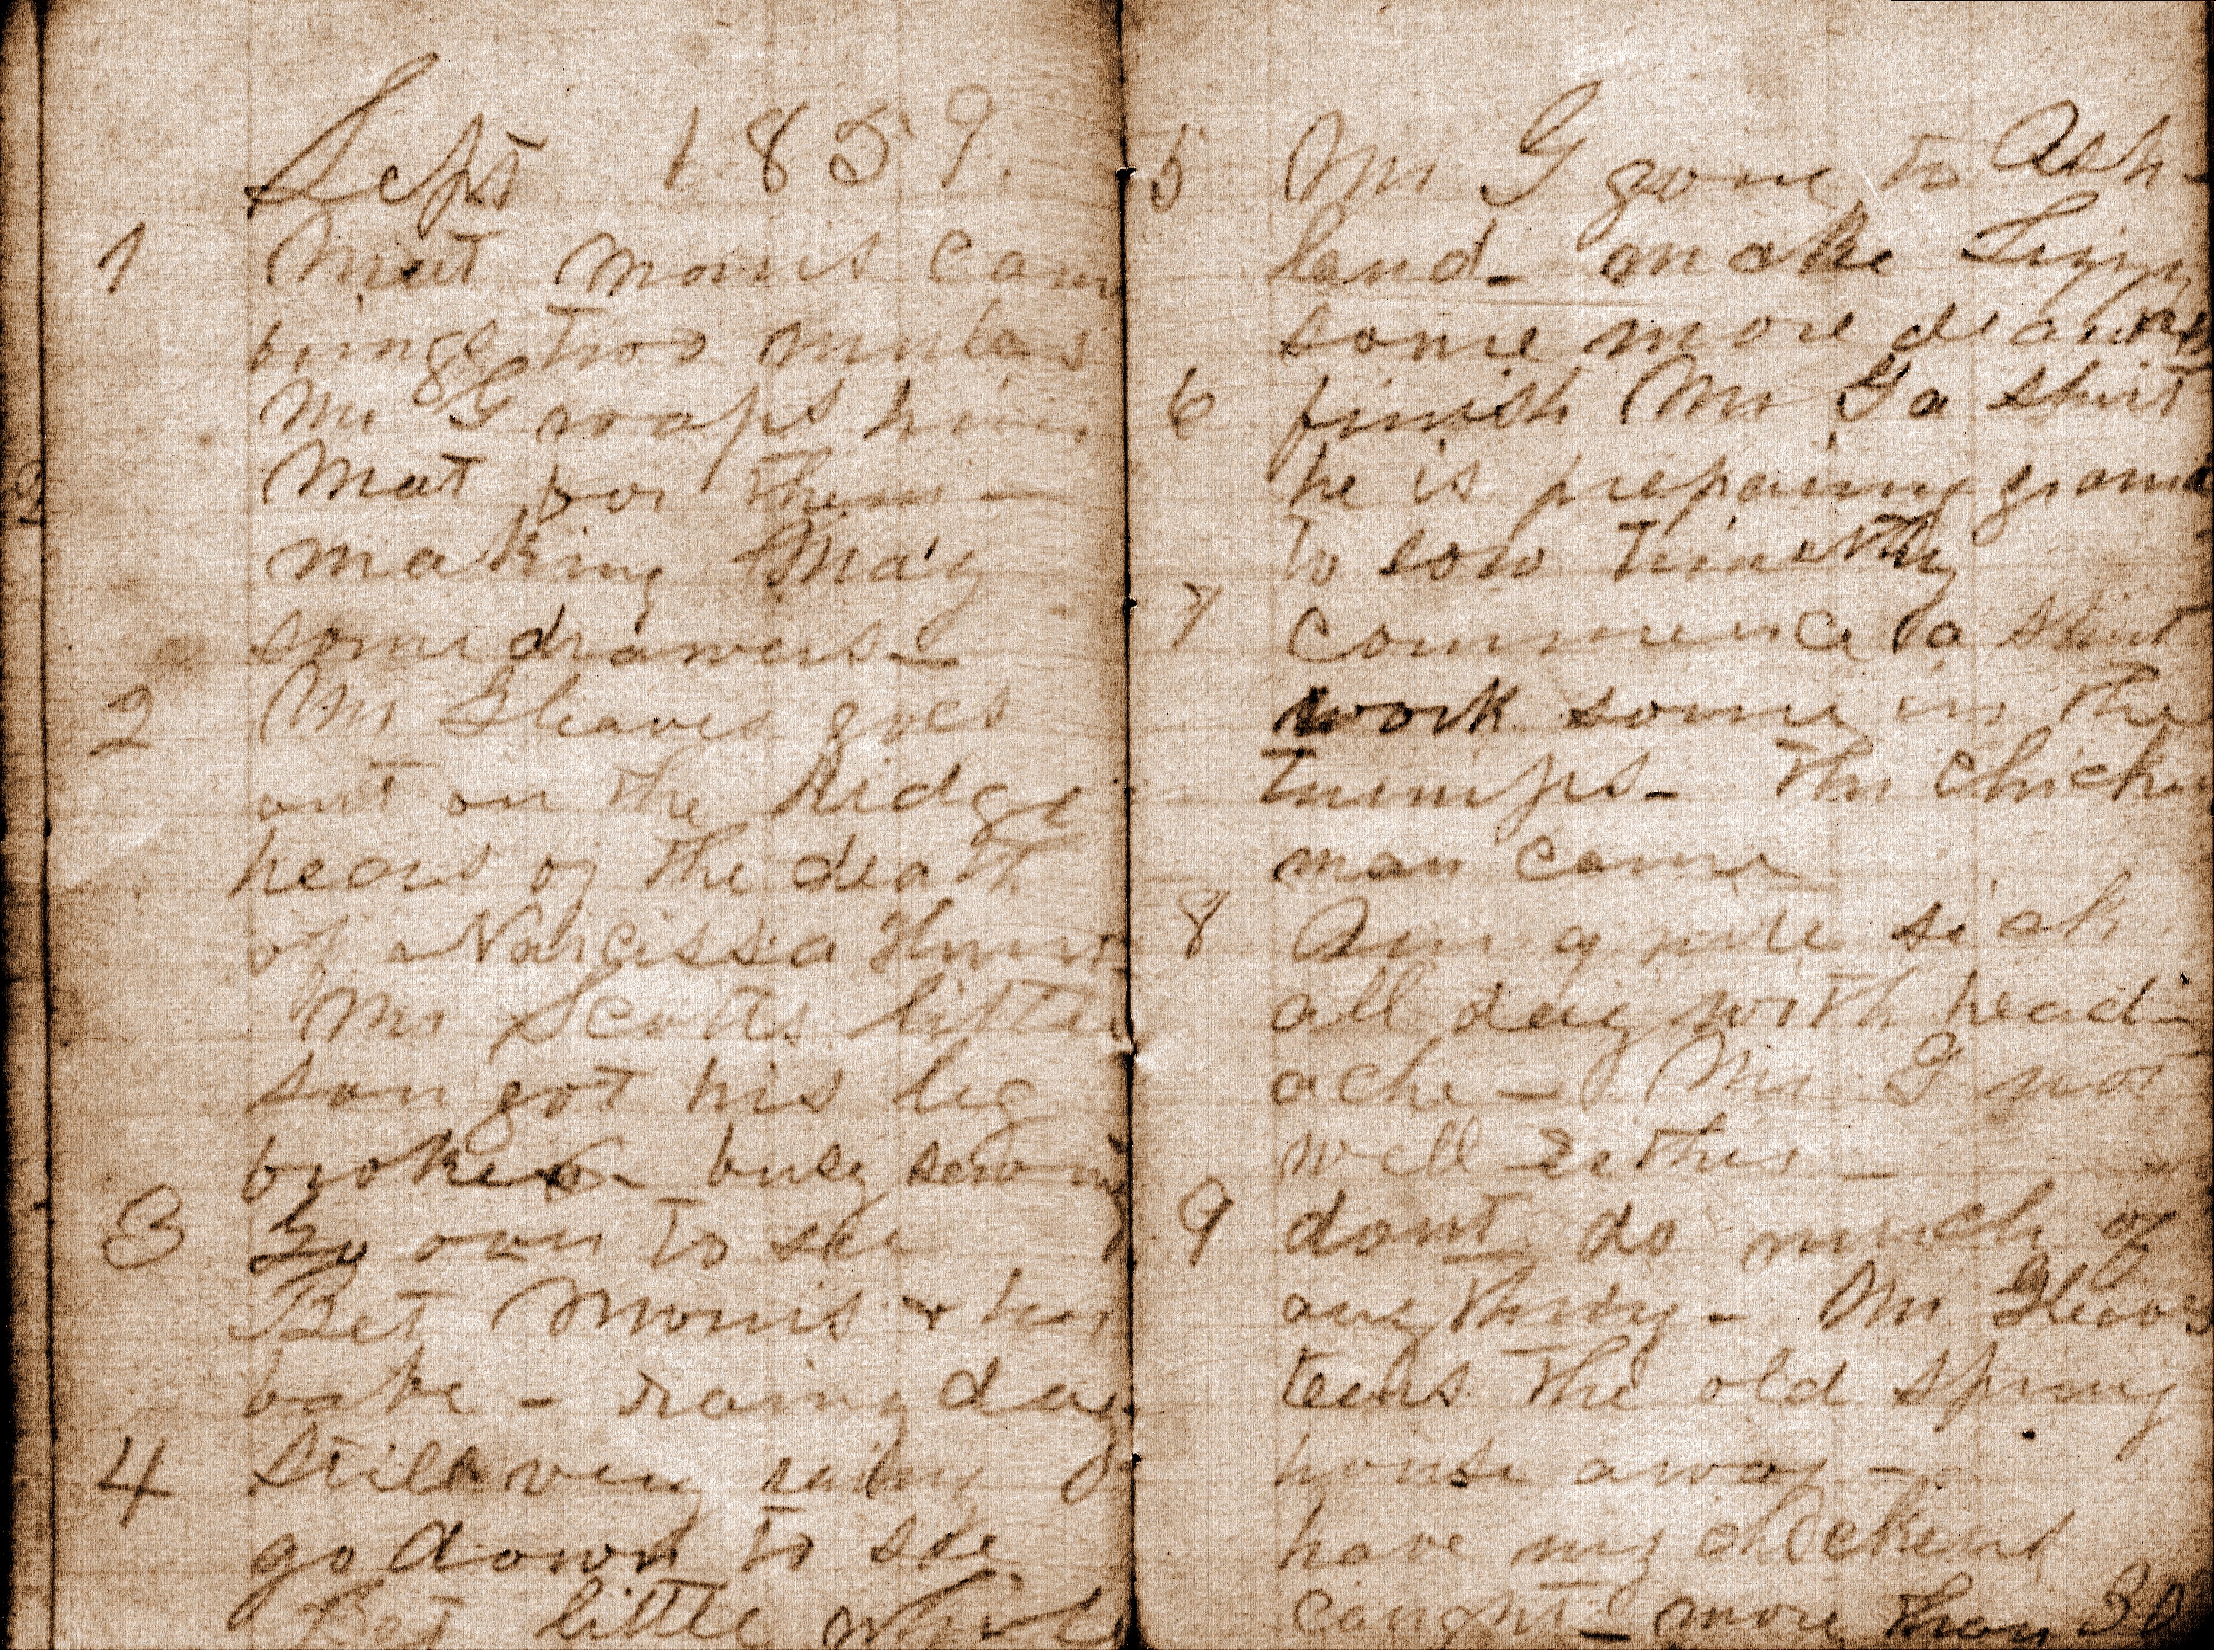 Sept 1859.
1 Mat Morris came
brings two mules
Mr G swaps him
Mat for them —
making Mag
some drawers —
2 Mr Gleaves goes
out on the Ridge
hears of the death
of Narcissa
Mr Scotts little
son got his leg
broke — busy sewing
3 Go over to see
Bet Morris & her
babe — rainy day
4 still very rainy
go down to see
Bet little while
5 Mr G gone to Ash-
land — make
some more drawers
6 finish Mr G a shirt
he is prepairing ground
to sow timothy
7 commence a shirt
work some in the
turnips — the chicken
man came
8 Am quite sick
all day with head-
ache — Mr G not
well either —
9 dont do much of
any thing — Mr Gleaves
tears the old spring
house away —
have my chickens
caught — more than 30